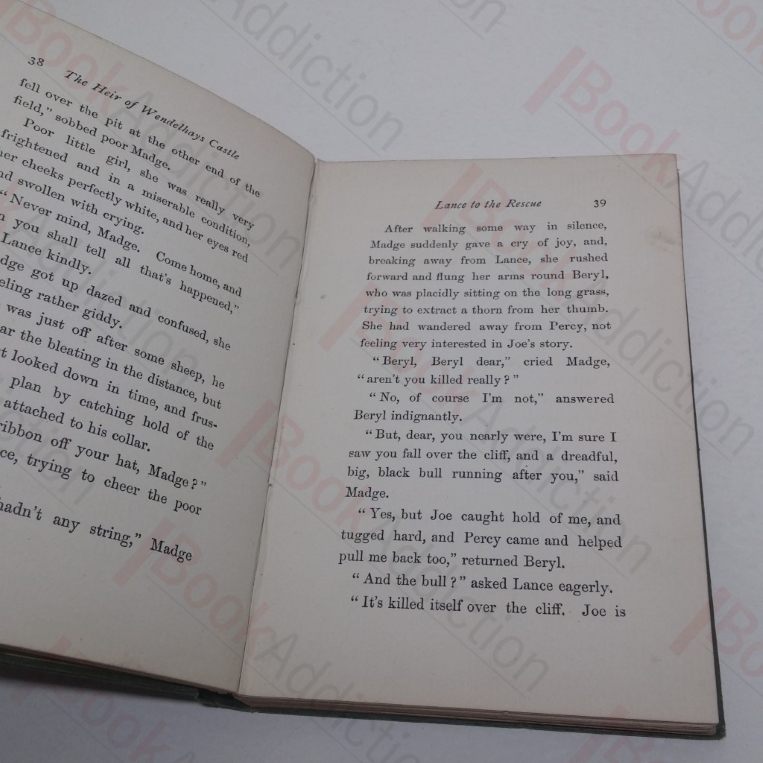 38
The Heir of Wendelhays Castle
fell over the pit at the other end of the
field," sobbed poor Madge.
Poor little girl, she was really very
frightened and in a miserable condition,
her cheeks perfectly white, and her eyes red
and swollen with crying.
"Never mind, Madge. Come home, and
you shall tell all that's happened,"
Lance kindly.
got up dazed and confused, she
rather giddy.
was just off after some sheep, he
the bleating in the distance, but
looked down in time, and frus-
plan by catching hold of the
attached to his collar.
ribbon off your hat, Madge?"
trying to cheer the poor
hadn't any string," Madge
Lance to the Rescue 39
After walking some way in silence,
Madge suddenly gave a cry of joy, and,
breaking away from Lance, she rushed
forward and flung her arms round Beryl,
who was placidly sitting on the long grass,
trying to extract a thorn from her thumb.
She had wandered away from Percy, not
feeling very interested in Joe's story.
"Beryl, Beryl dear," cried Madge,
"aren't you killed really?"
"No, of course I'm not," answered
Beryl indignantly.
"But, dear, you nearly were, I'm sure I
saw you fall over the cliff, and a dreadful,
big, black bull running after you," said
Madge.
"Yes, but Joe caught hold of me, and
tugged hard, and Percy came and helped
pull me back too," returned Beryl.
"And the bull?" asked Lance eagerly.
"It's killed itself over the cliff. Joe is
BookAddiction